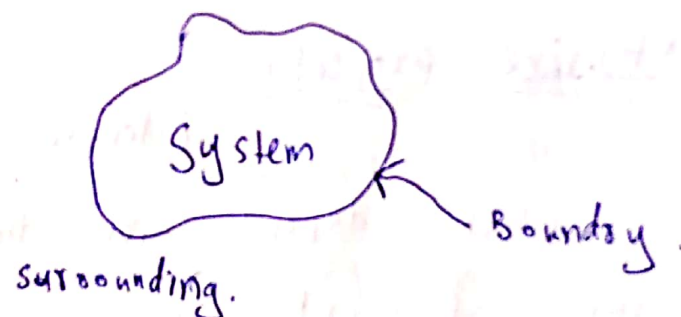 System
Boundry.
surrounding.